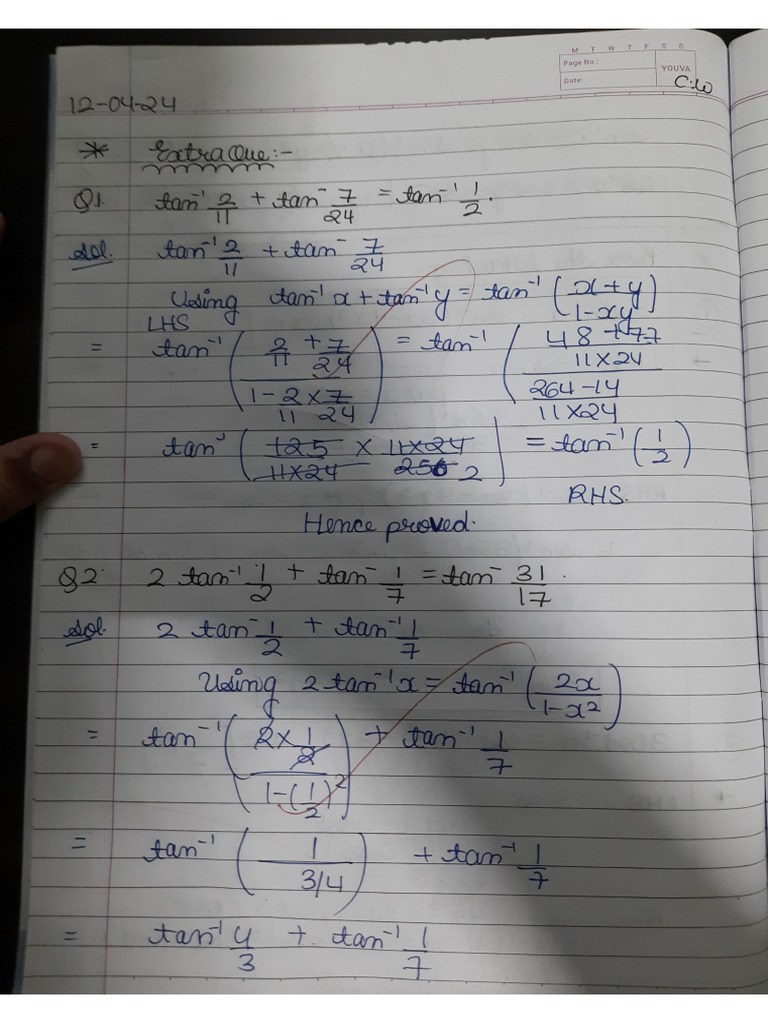 M T W T F S S
Page No.:
Date:
YOUVA
C.W
12-04-24
* Extra Que:-
Q1. tan⁻¹ 2/11 + tan⁻ 7/24 = tan⁻¹ 1/2.
Sol. tan⁻¹ 2/11 + tan⁻ 7/24
Using tan⁻¹x + tan⁻¹y = tan⁻¹ (x+y/1-xy)
LHS
= tan⁻¹ (2/11 + 7/24 / 1 - 2/11 × 7/24) = tan⁻¹ (48+77/11×24 / 264-14/11×24)
= tan⁻¹ (125/11×24 × 11×24/250 2) = tan⁻¹ (1/2)
RHS.
Hence proved.
Q2. 2 tan⁻¹ 1/2 + tan⁻ 1/7 = tan⁻ 31/17.
Sol. 2 tan⁻ 1/2 + tan⁻¹ 1/7
Using 2 tan⁻¹x = tan⁻¹ (2x/1-x²)
= tan⁻¹ (2×1/2 / 1-(1/2)²) + tan⁻¹ 1/7
= tan⁻¹ (1 / 3/4) + tan⁻¹ 1/7
= tan⁻¹ 4/3 + tan⁻¹ 1/7